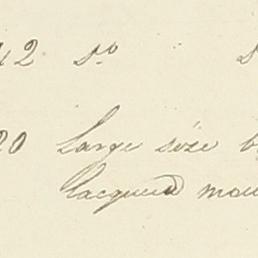 42 do
20 Large size
Lacquered